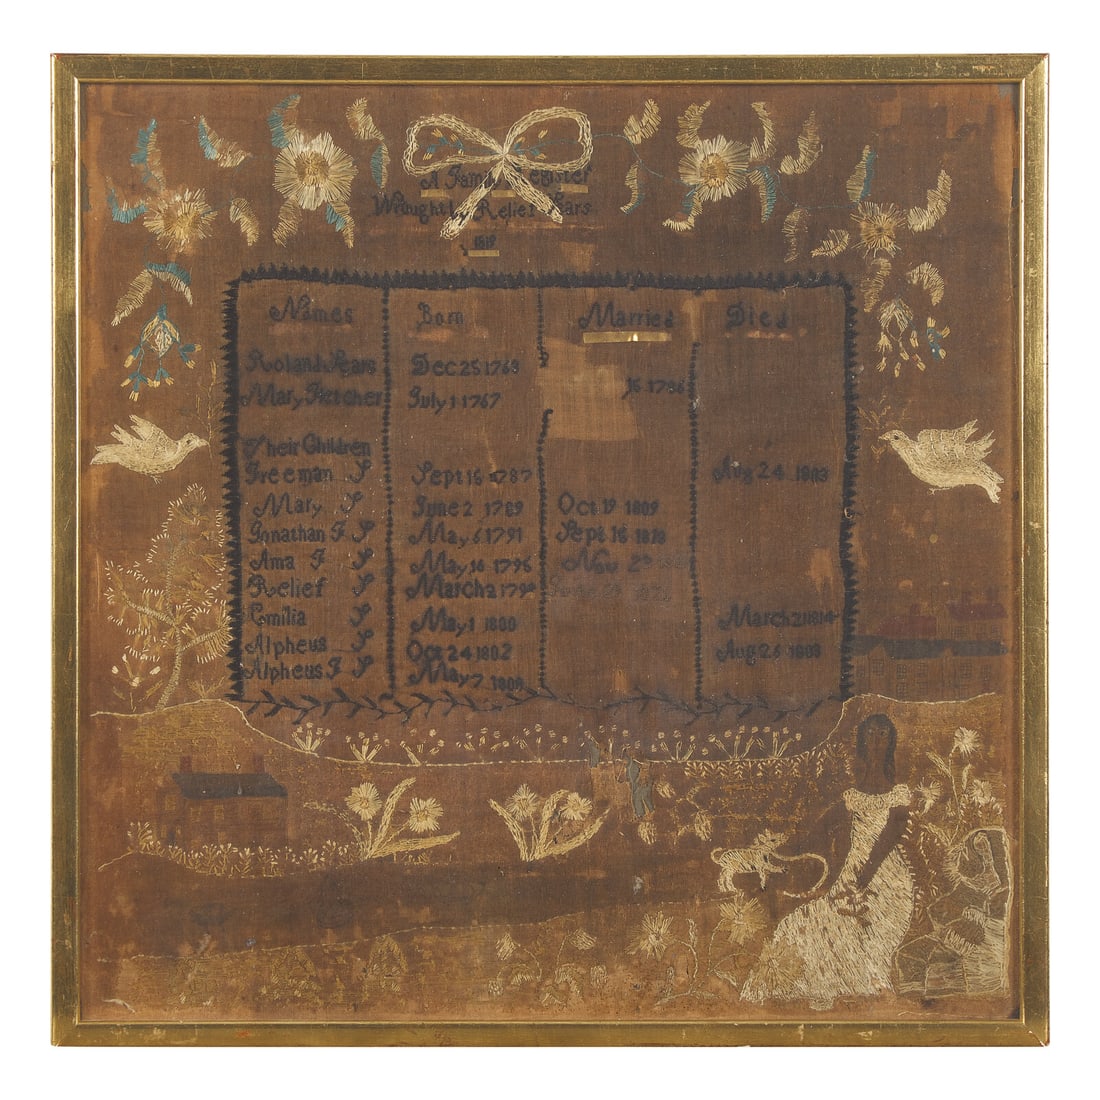 A Family Register
Wrought by Relief Sears
1819
Names Born Married Died
Roland Sears Dec 25 1763
Mary Fletcher July 1 1767 16 1786
Their Children
Freeman S Sept 16 1787 Aug 24 1803
Mary S June 2 1789 Oct 19 1809
Jonathan F S May 6 1791 Sept 16 1818
Ama F S May 16 1796 Nov
Relief S March 2
Emilia S May 1 1800 March 21 1814
Alpheus S Oct 24 1802 Aug 26 1803
Alpheus F S May 7